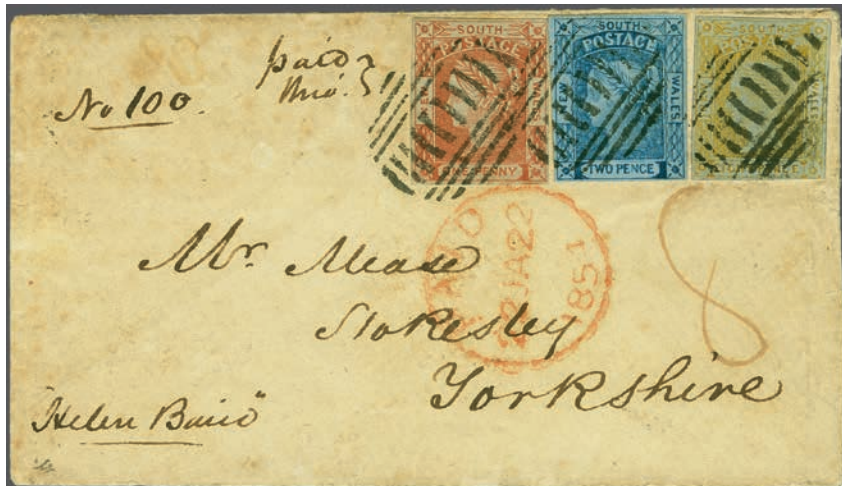 No 100.
paid
SOUTH
POSTAGE
WALES
ONE PENNY
SOUTH
POSTAGE
WALES
TWO PENCE
SOUTH
POSTAGE
WALES
PAID
22 JA 22
1851
8
Mr. Mease
Stokesley
Yorkshire
"Helen Baird"